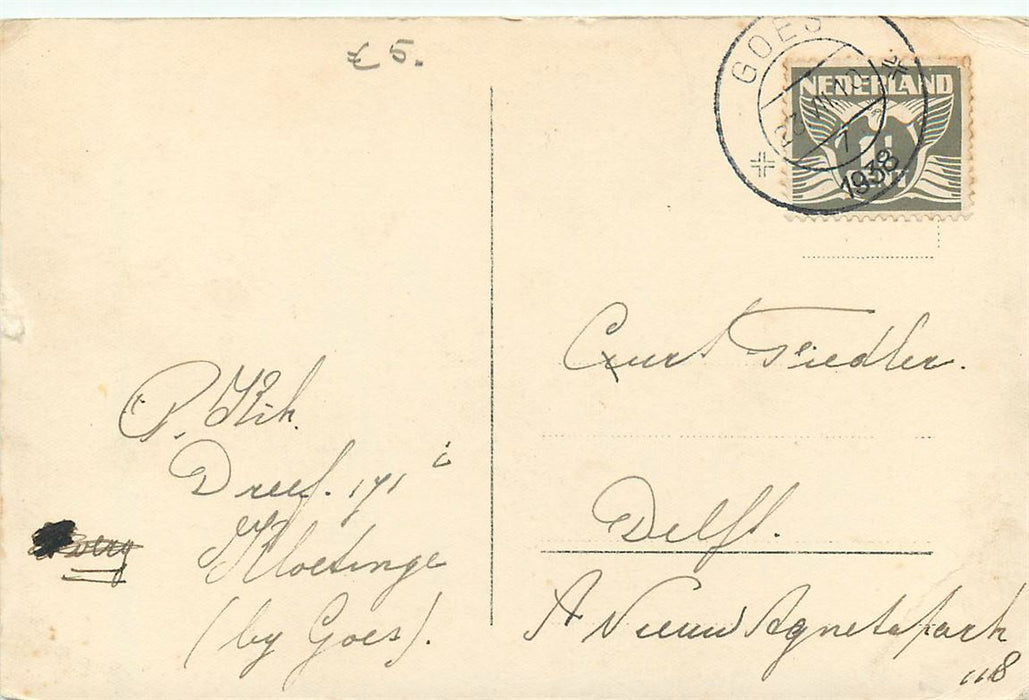 £ 5.
GOES
23 VII 19
7
1938
NEDERLAND
P. Kik
Dreef. 171 i
Kloetinge
(by Goes).
Curt Fiedler.
Delft.
A Nieuw Agnetapark
118